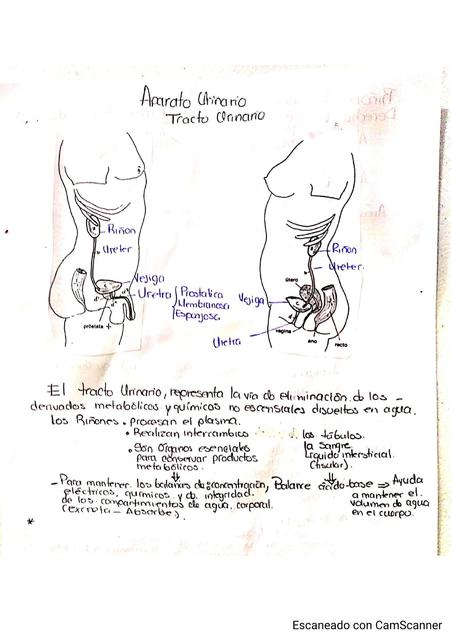 Aparato Urinario
Tracto Urinario
Riñon
Ureter
Vejiga
Uretra
Prostatica
Membranosa
Esponjosa
próstata
Riñon
Ureter.
útero
Vejiga
Uretra
vagina
ano
recto
El tracto Urinario, representa la vía de eliminación de los -
derivados metabólicos y químicos no escenciales disueltos en agua.
los Riñones • procesan el plasma.
• Realizan intercambio
los túbulos.
la sangre
Líquido intersticial
(tisular).
• Son órganos esenciales
para conservar productos
metabólicos.
- Para mantener los balances de concentración,
eléctricos, químicos y de integridad.
de los compartimientos de agua corporal.
(excreta - Absorbe).
Balance ácido-base ⇒ Ayuda
a mantener el
volumen de agua
en el cuerpo.
*
Escaneado con CamScanner